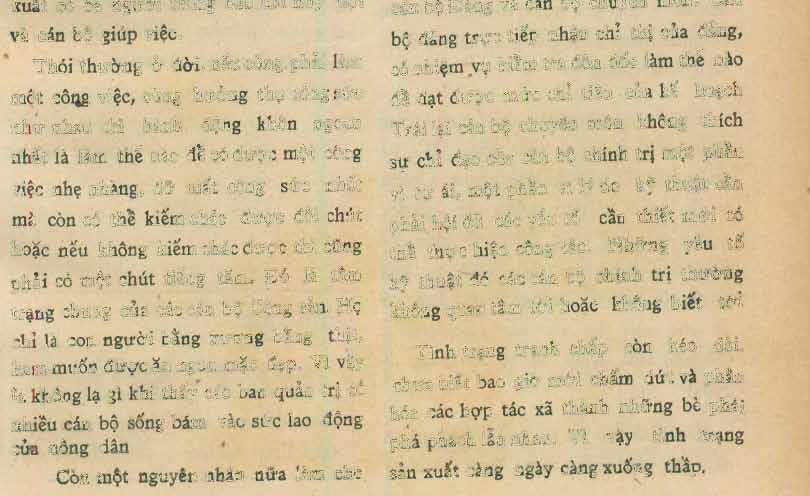 xuất có
và cán bộ giúp việc.
Thói thường ở đời, nếu cũng phải làm
một công việc, cùng hưởng thụ công sức
như nhau thì hành động khôn ngoan
nhất là làm thế nào để có được một công
việc nhẹ nhàng, đỡ mất công sức nhất
mà còn có thể kiếm chác được đôi chút
hoặc nếu không kiếm chác được thì cũng
phải có một chút tiếng tăm. Đó là tâm
trạng chung của các cán bộ Cộng sản. Họ
chỉ là con người bằng xương bằng thịt,
ham muốn được ăn ngon mặc đẹp. Vì vậy
là không lạ gì khi thấy các ban quản trị có
nhiều cán bộ sống bám vào sức lao động
của nông dân
Còn một nguyên nhân nữa làm cho
cán bộ đảng và cán bộ chuyên môn.
bộ đảng trực tiếp nhận chỉ thị của đảng,
có nhiệm vụ kiểm tra đôn đốc làm thế nào
để đạt được mức chỉ tiêu của kế hoạch
Trái lại cán bộ chuyên môn không thích
sự chỉ đạo của cán bộ chính trị một phần
vì tự ái, một phần vì lý do kỹ thuật cần
phải hội đủ các yếu tố cần thiết mới có
thể thực hiện công tác. Những yếu tố
kỹ thuật đó các cán bộ chính trị thường
không quan tâm tới hoặc không biết tới
Tình trạng tranh chấp còn kéo dài,
chưa biết bao giờ mới chấm dứt và phân
hóa các hợp tác xã thành những bè phái
phá phách lẫn nhau. Vì vậy tình trạng
sản xuất càng ngày càng xuống thấp.